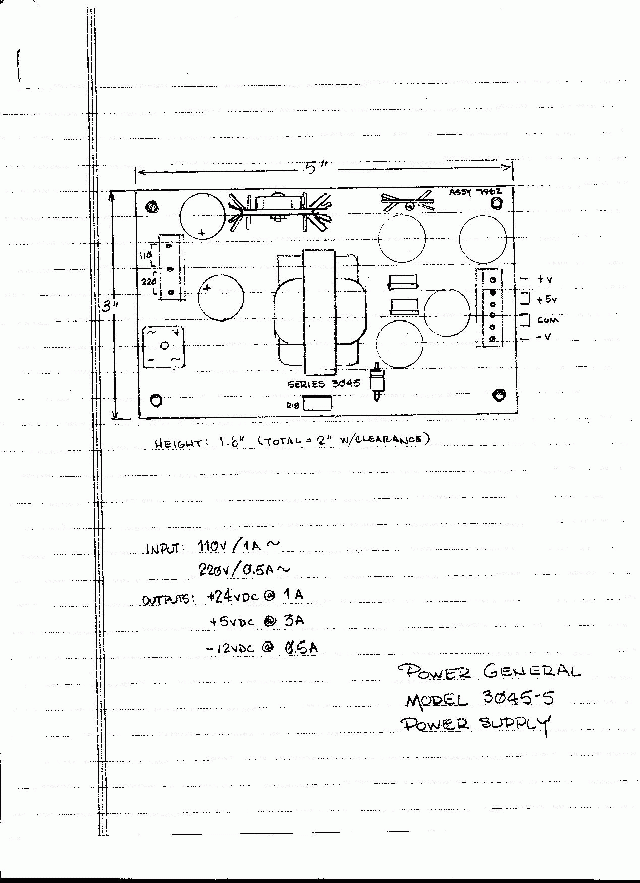 5"
ASSY 7962
+
110
220
3"
+V
+5V
COM
-V
+
~ +
- ~
SERIES 3045
R18
HEIGHT: 1.6" (TOTAL = 2" W/CLEARANCE)
INPUT: 110V/1A~
220V/0.5A~
OUTPUTS: +24VDC @ 1A
+5VDC @ 3A
-12VDC @ 0.5A
POWER GENERAL
MODEL 3045-5
POWER SUPPLY